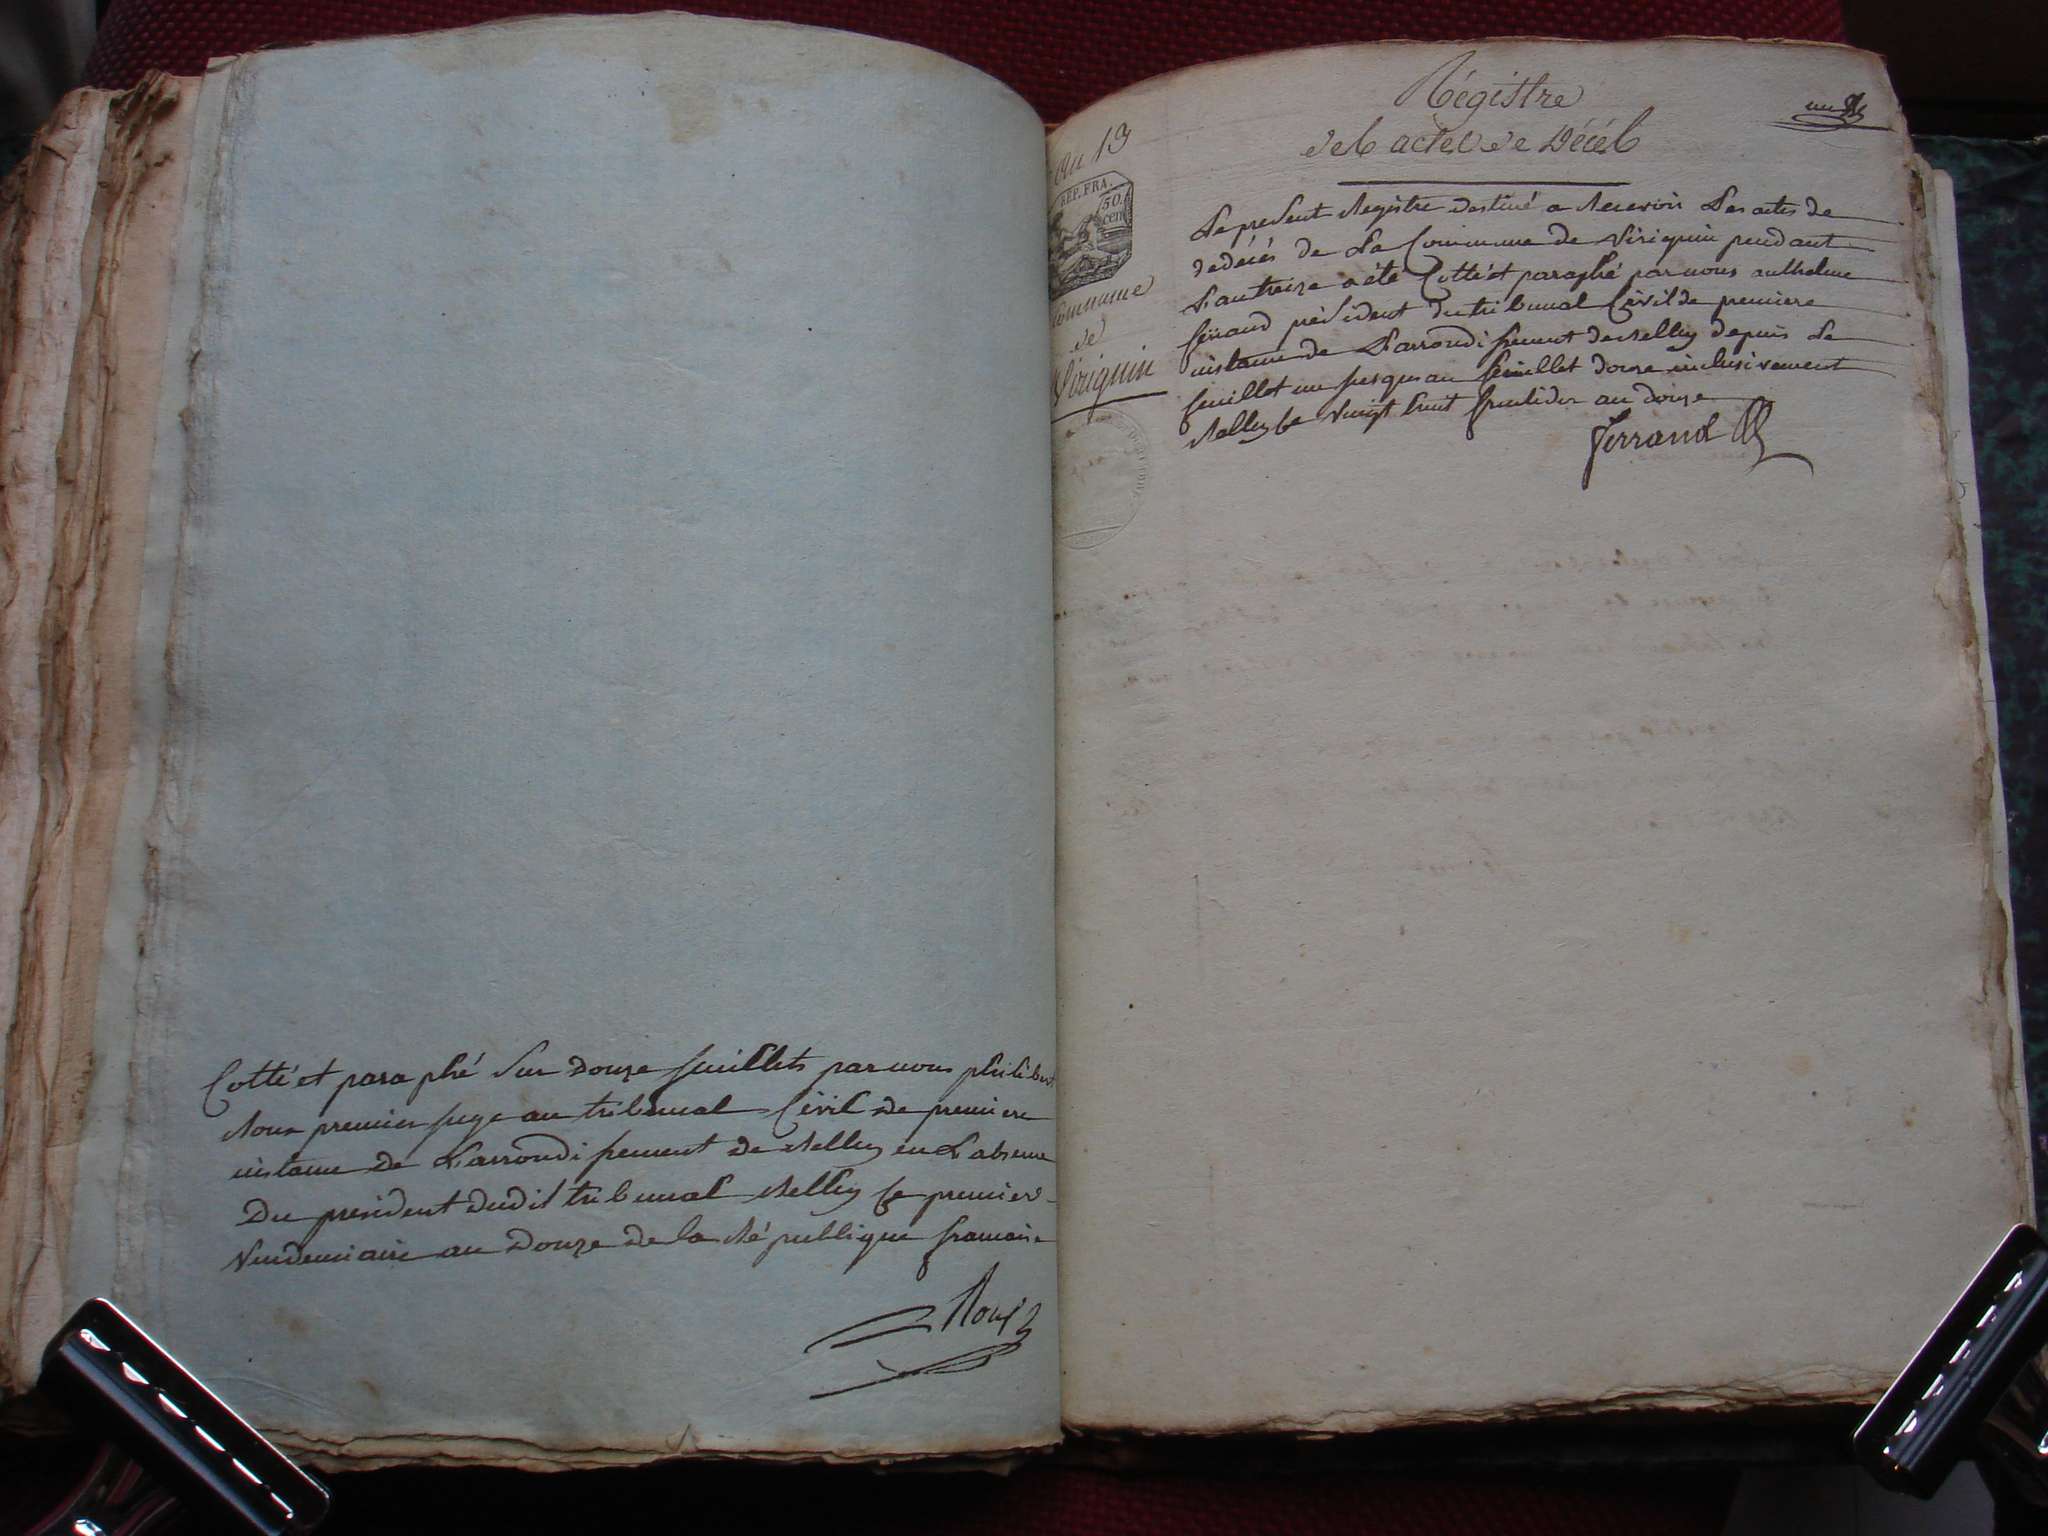 Cotté et paraphé sur douze feuillets par nous philibert
Roux premier juge au tribunal Civil de premiere
instance de L'arrondissement de Belley en L'absence
Du president dudit tribunal Belley le premier
Vendemiaire an Douze de la République francaise
Roux
an 13
REP. FRA.
50
cen
Commune
de
Virignin
Régistre
des actes de Décés
un
Le present Registre destiné a Recevoir Les actes de
dedécés de La Commune de Virignin pendant
L'an treize a été Cotté et paraphé par nous anthelme
ferrand président du tribunal Civil de premiere
instance de L'arrondissement de Belley depuis Le
feuillet un jusques au feuillet douze inclusivement
Belley le vingt huit fructidor an douze
ferrand